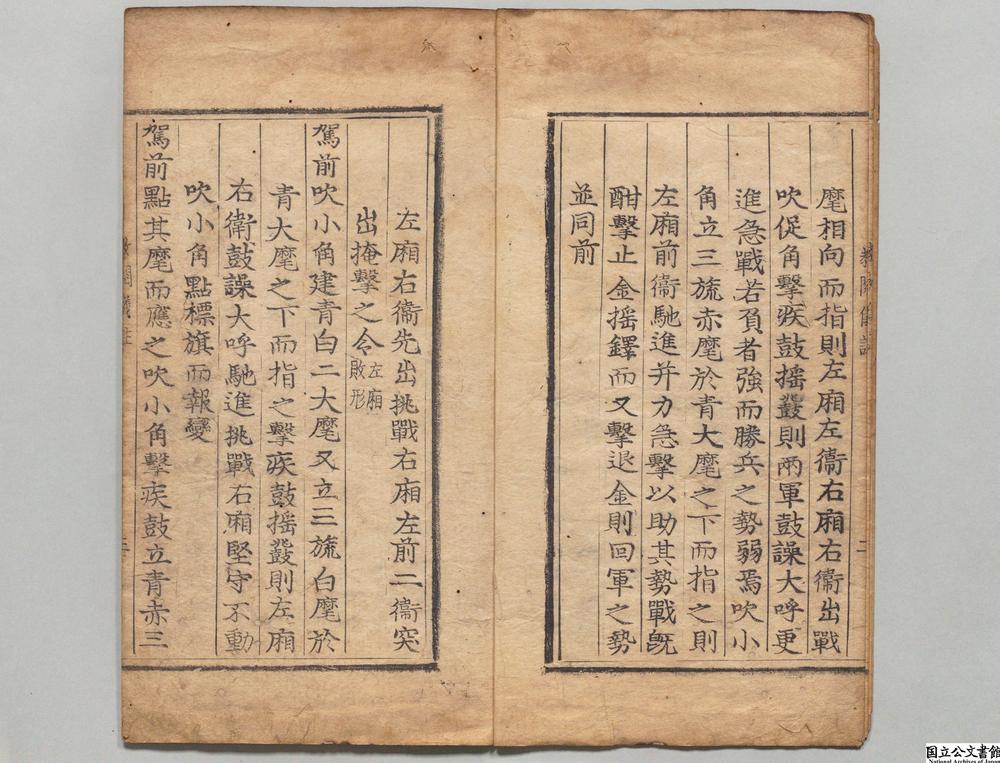 麾相向而指則左廂左衛右廂右衛出戰
吹促角擊疾鼓揺鼗則兩軍鼓譟大呼更
進急戰若負者強而勝兵之勢弱焉吹小
角立三旒赤麾於青大麾之下而指之則
左廂前衛馳進并力急擊以助其勢戰旣
酣擊止金揺鐸而又擊退金則回軍之勢
並同前
左廂右衛先出挑戰右廂左前二衛突
出掩擊之令左廂敗形
駕前吹小角建青白二大麾又立三旒白麾於
青大麾之下而指之擊疾鼓揺鼗則左廂
右衛鼓譟大呼馳進挑戰右廂堅守不動
吹小角點標旗而報變
駕前點其麾而應之吹小角擊疾鼓立青赤三
二
国立公文書館
National Archives of Japan